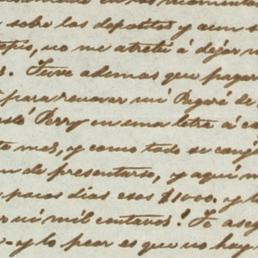 sobre los depositos y aun s
no me atreví a dejar
s. Tuve ademas que pagar
para renovar mi Pagaré de
Perry en una letra á c
te mes, y como todo se conj
n de presentarse, y aqui m
pocos dias esos $1000. y l
r ni mil centavos! Te ase
- y lo peor es que no hay